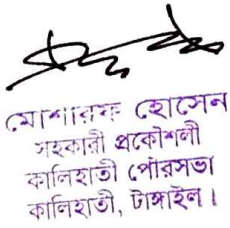 মোশাররফ হোসেন
সহকারী প্রকৌশলী
কালিহাতী পৌরসভা
কালিহাতী, টাঙ্গাইল।